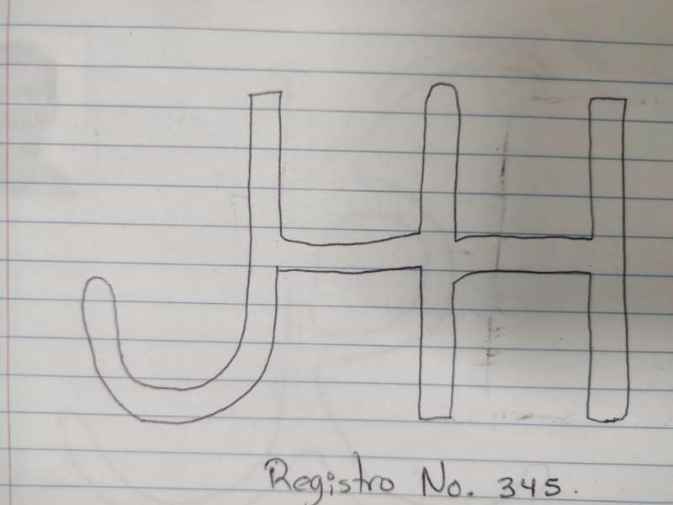 JH
Registro No. 345.